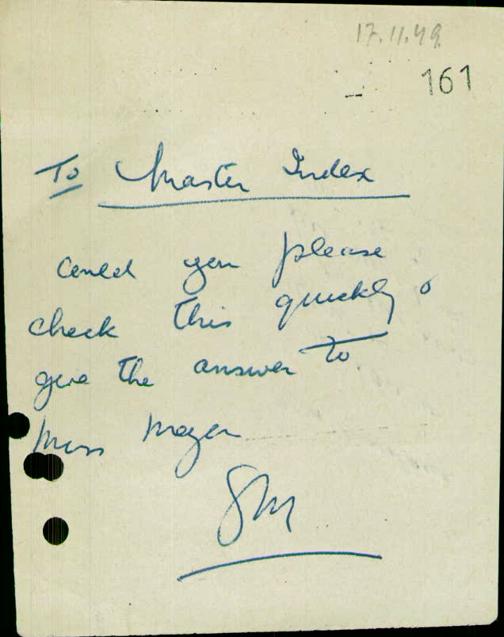 17.11.49
161
To Master Index
Could you please
check this quickly &
give the answer to
Miss Mayer
SM